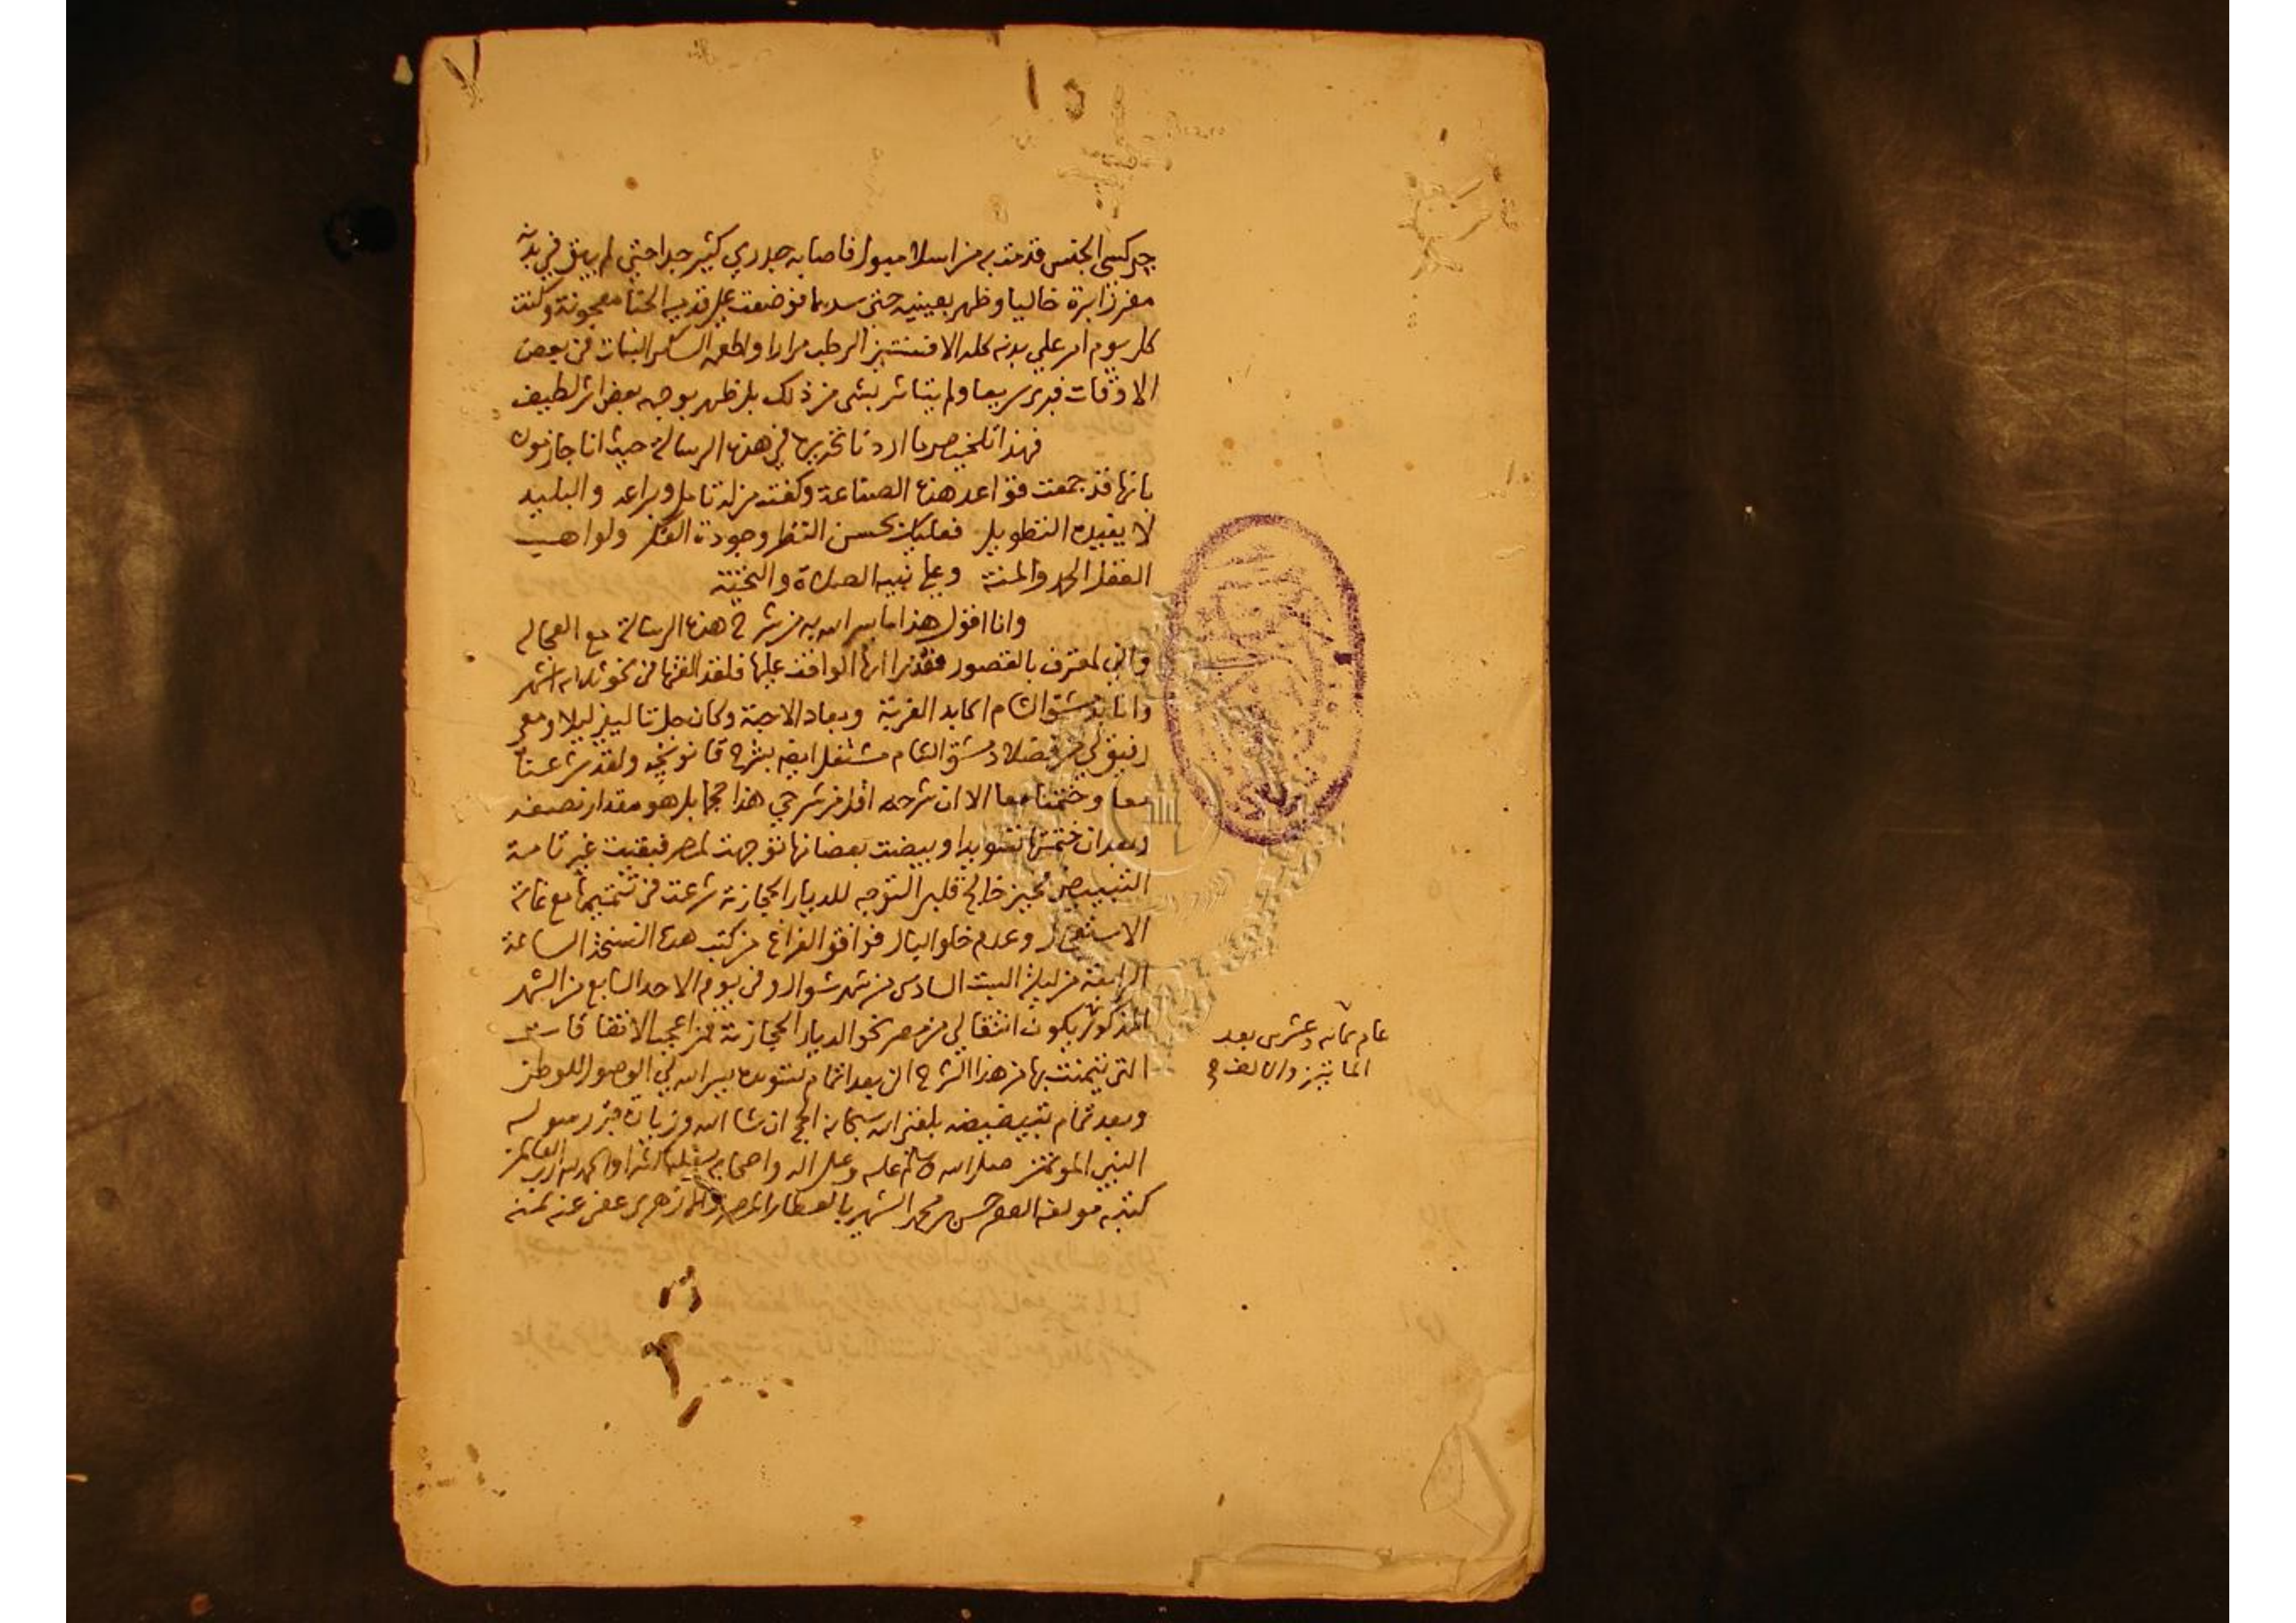 جركسي الجنس قدمت به من اسلامبول فاصابه جدري كثير جدا حتى لم يبق في بدنه
مغرز ابرة خاليا وظهر بعينيه حتى سدهما فوضعت على قدميه الحنا معجونة وكنت
كل يوم امر على بدنه كله الافسنتين الرطب مرارا واطعمه السكر النبات في بعض
الاوقات فبرى سريعا ولم يتاثر بشي من ذلك بل ظهر بوجهه بعض اثر لطيف
فهذا تلخيص ما اردنا تحريره في هذه الرسالة حيث انا جازمون
بانها قد جمعت قواعد هذه الصناعة وكفت من له تامل وبراعه والبليد
لا يفيده التطويل فعليك بحسن النظر وجودة الفكر ولواهب
العقل الحمد والمنة وعلى نبيه الصلاة والتحية
وانا اقول هذا ما يسر الله به من شرح هذه الرسالة مع العجالة
واني لمعترف بالقصور فقد ايها الواقف عليها فلقد الفتها في نحو ثلاثة اشهر
وانا بدمشق الشام اكابد الغربة وبعاد الاحبة وكان جل تاليفي ليلا ومعي
رفيق لي من فضلاء دمشق الشام مشتغل ايضا بشرح قانونچه ولقد شرعنا
معا وختمنا معا الا ان شرحه اقل من شرحي هذا حجما بل هو مقدار نصفه
وبعد ان ختمتها تسويدا وبيضت بعضا منها توجهت لمصر فبقيت غير تامة
التبييض فحين خالج قلبي التوجه للديار الحجازية شرعت في تتميمها مع غاية
الاستعجال وعدم خلو البال فوافق الفراغ من كتب هذه النسخة الساعة
الرابعة من ليلة السبت السادس من شهر شوال وفي يوم الاحد السابع من الشهر
المذكور يكون انتقالي من مصر نحو الديار الحجازية فمن اعجب الاتفاقات
عام ثمانية وعشرين بعد
المايتين والالف
التي تيمنت بها في هذا الشرح اني بعد اتمام تسويده يسر الله لي الوصول للوطن
وبعد تمام تبييضه بلغني الله سبحانه الحج ان شا الله وزيارة قبر رسوله
النبي المؤتمن صلى الله وسلم عليه وعلى اله واصحابه والحمد لله رب العالمين
كتبه مولفه الفقير حسن بن محمد الشهير بالعطار المصري الازهري عفي عنه بمنه